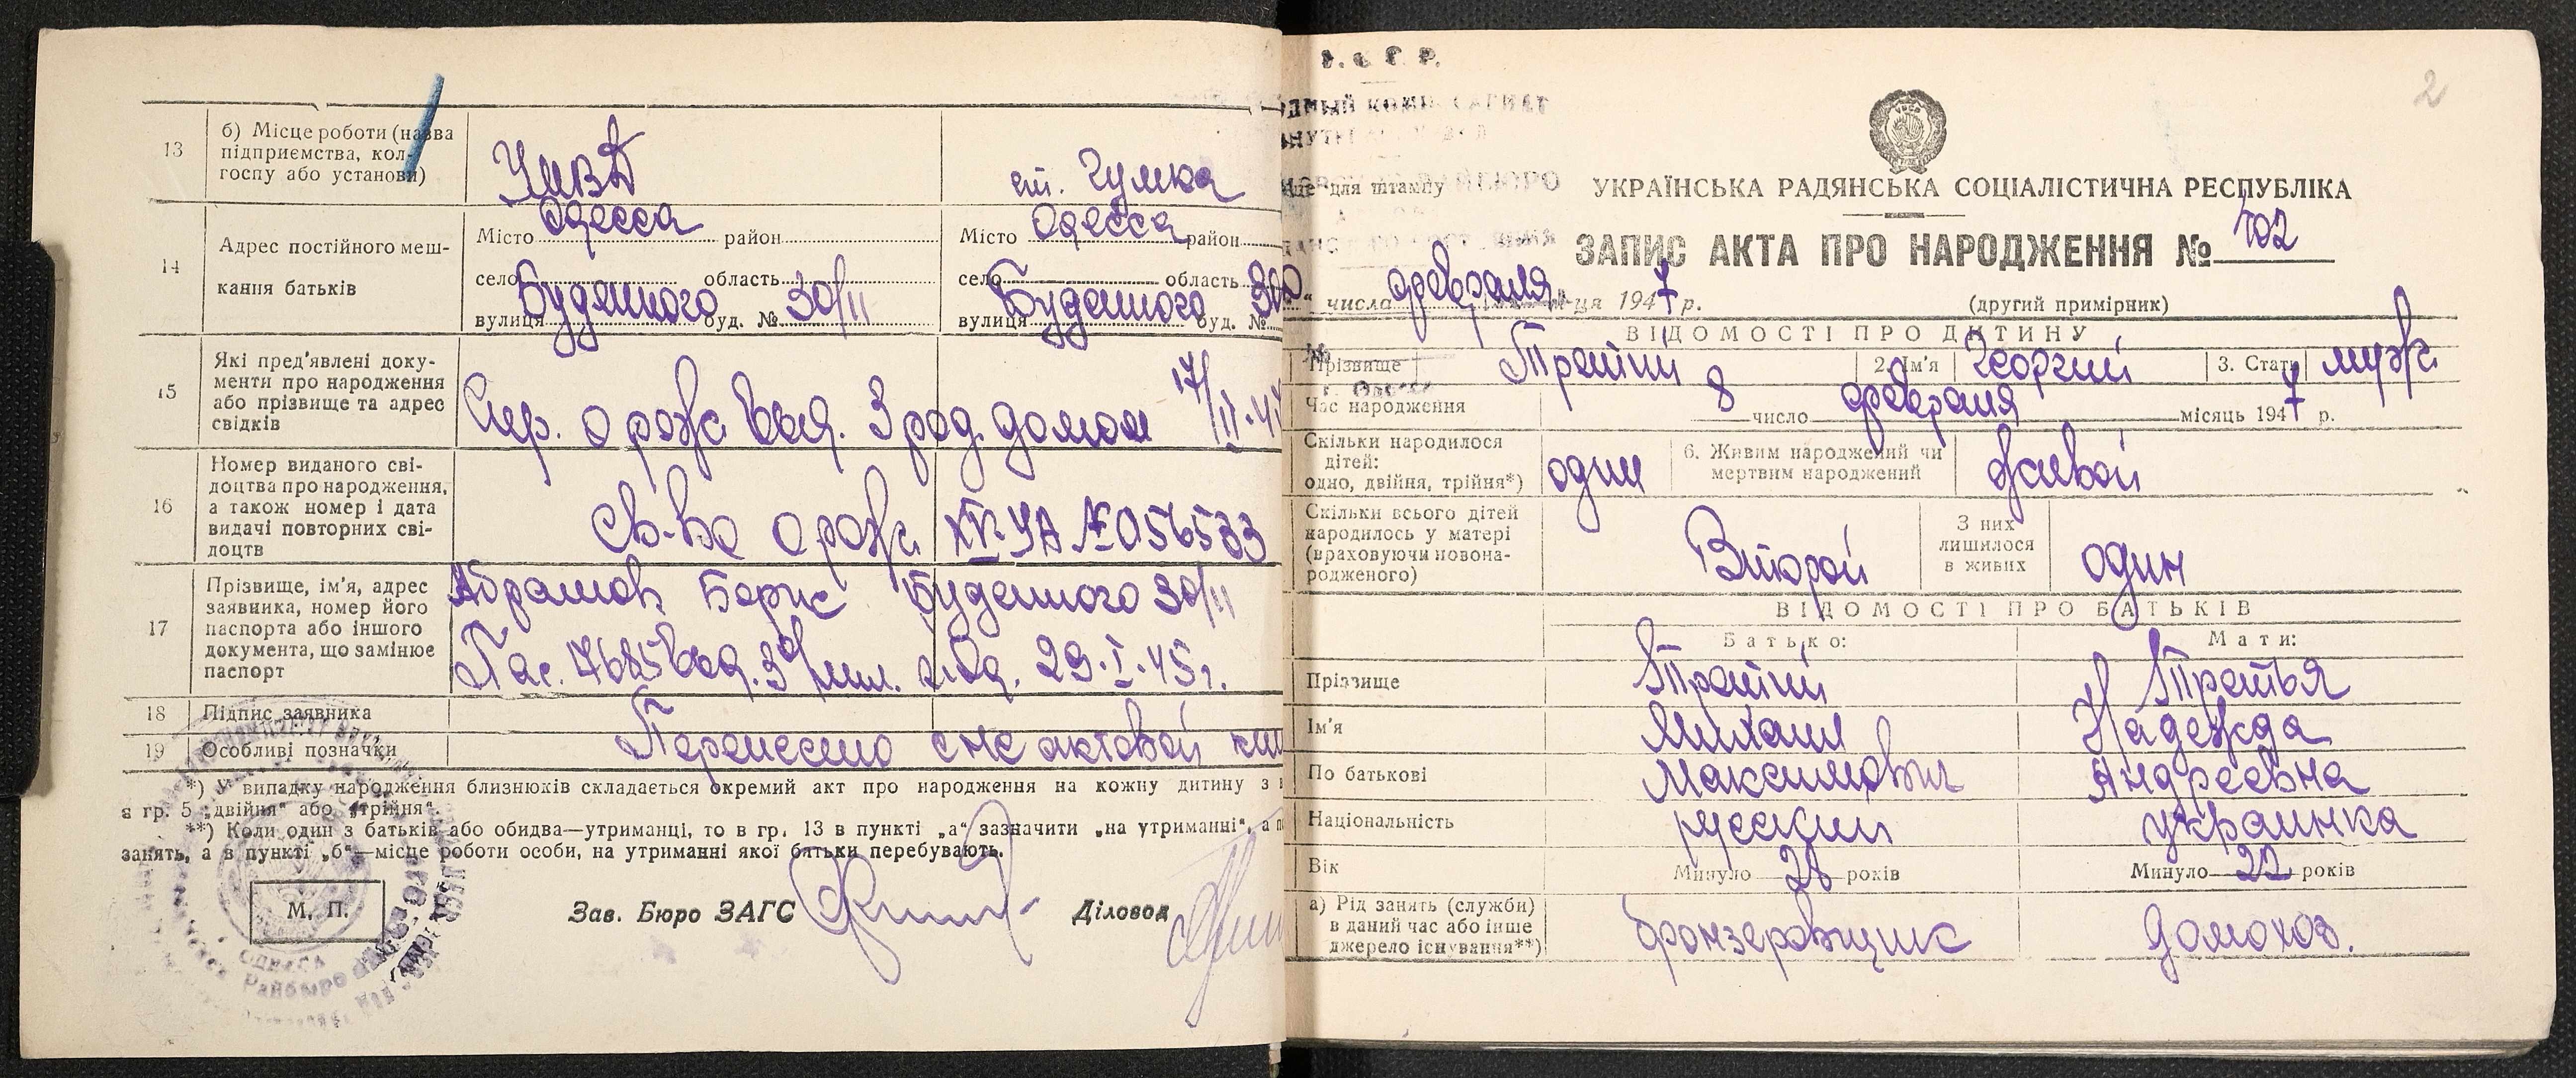 13
б) Місце роботи (назва
підприємства, кол-
госпу або установи)
УМВД
ст. Чумка
14
Адрес постійного меш-
кання батьків
Одесса
Місто район
село область
Буденного 30/11
вулиця буд. №
Одесса
Місто район
село область
Буденного 30
вулиця буд. №
15
Які пред'явлені доку-
менти про народження
або прізвище та адрес
свідків
Спр. о рожд. выд. 3 род. домом 17/II-4
16
Номер виданого сві-
доцтва про народження,
а також номер і дата
видачі повторних сві-
доцтв
Св-во о рожд. УА № 056533
17
Прізвище, ім'я, адрес
заявника, номер його
паспорта або іншого
документа, що замінює
паспорт
Абрамов Борис Буденного 30/11
Пас. выд. 3 мил. Од. 29.I.45 г.
18
Підпис заявника
19
Особливі позначки
Перенесено с актовой кни
*) У випадку народження близнюків складається окремий акт про народження на кожну дитину з
в гр. 5 „двійня“ або „трійня“.
**) Коли один з батьків або обидва—утриманці, то в гр. 13 в пункті „а“ зазначити „на утриманні“, а
занять, а в пункті „б“—місце роботи особи, на утриманні якої батьки перебувають.
М. П.
Зав. Бюро ЗАГС
Діловод
ОДЕССА
2
для штампу
УКРАЇНСЬКА РАДЯНСЬКА СОЦІАЛІСТИЧНА РЕСПУБЛІКА
ЗАПИС АКТА ПРО НАРОДЖЕННЯ № 402
числа февраля ця 1947 р.
(другий примірник)
ВІДОМОСТІ ПРО ДИТИНУ
Прізвище Третий 2. Ім'я Георгий 3. Стать муж
Час народження 8 число февраля місяць 1947 р.
Скільки народилося
дітей:
одно, двійня, трійня*)
один
6. Живим народжений чи
мертвим народжений
живой
Скільки всього дітей
народилось у матері
(враховуючи новона-
родженого)
Второй
З них
лишилося
в живих
один
ВІДОМОСТІ ПРО БАТЬКІВ
Батько: Мати:
Прізвище Третий Третья
Ім'я Михаил Надежда
По батькові Максимович Андреевна
Національність русский украинка
Вік Минуло 28 років Минуло 22 років
а) Рід занять (служби)
в даний час або інше
джерело існування**)
бронзеровщик домохоз.